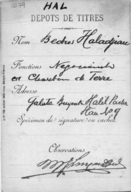 HAL
DEPOTS DE TITRES
Nom Bedros Haladjian
Fonctions Négociant
en Charbon de Terre
Adresse
Galata Buyuk Halil Pacha
Han Nº 9
Spécimen de signature ou cachet
Observations